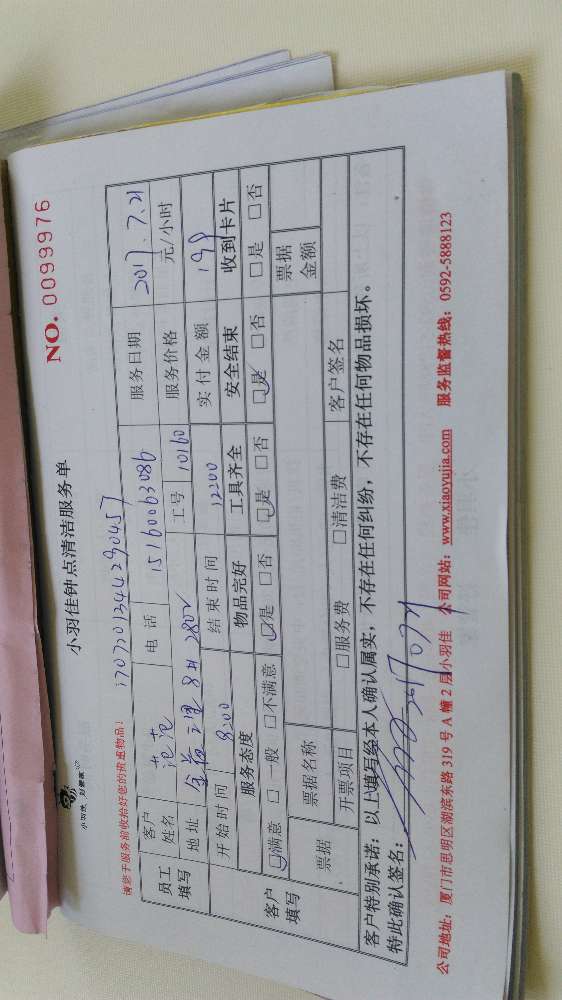 小羽佳钟点清洁服务单
NO. 0099976
小羽佳，到家啦
请您于服务前收拾好您的贵重物品！
1707201344290457
员工填写 客户姓名 范范 电话 15160063086 服务日期 2017.7.21
地址 8# 2802 工号 10160 服务价格 元/小时
客户填写 开始时间 9:00 结束时间 12:00 实付金额 198
服务态度 物品完好 工具齐全 安全结束 收到卡片
☑满意 □一般 □不满意 ☑是 □否 ☑是 □否 ☑是 □否 □是 □否
票据 票据名称 票据金额
开票项目 □服务费 □清洁费 客户签名
客户特别承诺：以上填写经本人确认属实，不存在任何纠纷，不存在任何物品损坏。
特此确认签名：
公司地址：厦门市思明区湖滨东路 319 号 A 幢 2 层小羽佳 公司网站：www.xiaoyujia.com 服务监督热线：0592-5888123